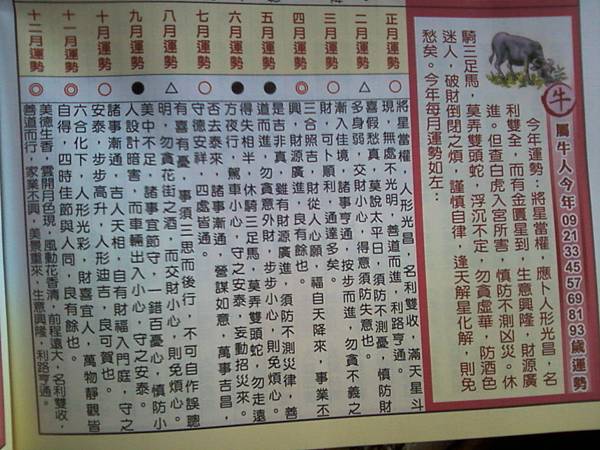 牛
屬牛人今年09 21 33 45 57 69 81 93歲運勢
今年運勢:將星當權,應卜人形光昌,名
利雙全,而有金匱星到,生意興隆,財源廣
進。但查白虎入宮所害,慎防不測凶災。休
騎三足馬,莫弄雙頭蛇,浮沉不定,勿貪虛華,防酒色
迷人,破財倒閉之煩,謹慎自律,逢天解星化解,則免
愁矣。今年每月運勢如左:
正月運勢 ○ 將星當權,人形光昌,名利雙收,滿天星斗
現,無處不光明,善道而進,利路亨通。
二月運勢 △ 喜假愁真,莫說太平日,須防不測憂,慎防財
多身弱,交財小心,得意須防失意也。
三月運勢 ○ 漸入佳境,諸事亨通,按步而進,勿貪不義之
財,可卜順利,通達多矣。
四月運勢 ◎ 三合照吉,財從人心願,福自天降來,事業丕
興,財源廣進,良有餘也。
五月運勢 ● 是吉非真,雖有財源廣進,須防不測災律,善
道而進,勿貪意外財,步步小心,則免煩心。
六月運勢 ● 得失相半,休騎三足馬,莫弄雙頭蛇,勿走遠
方夜行,駕車小心,守之安泰,妄動招災來。
七月運勢 ○ 否去泰來,諸事漸通,營謀如意,萬事吉昌,
守德安祥,四處皆通。
八月運勢 △ 有喜有憂,事須三思而後行,不可自作誤聰
明,勿貪花街之酒,而交財小心,則免煩心。
九月運勢 ● 美中不足,諸事宜節守,一錯百憂心,慎防小
人設計暗害,而車輛出入小心,守之安泰。
十月運勢 ○ 諸事漸通,吉人天相,自有財福入門庭,守之
安泰,步步高升,人形迪吉,良可賀也。
十一月運勢 ◎ 六合化下,人形光彩,財喜宜人,萬物靜觀皆
自得,四時佳節與人同,良有餘也。
十二月運勢 ◎ 美德生香,雲開月色現,風動花香清,前程遠大,名利雙收,
善道而行,家業丕興,美景重來,生意興隆,利路亨通。